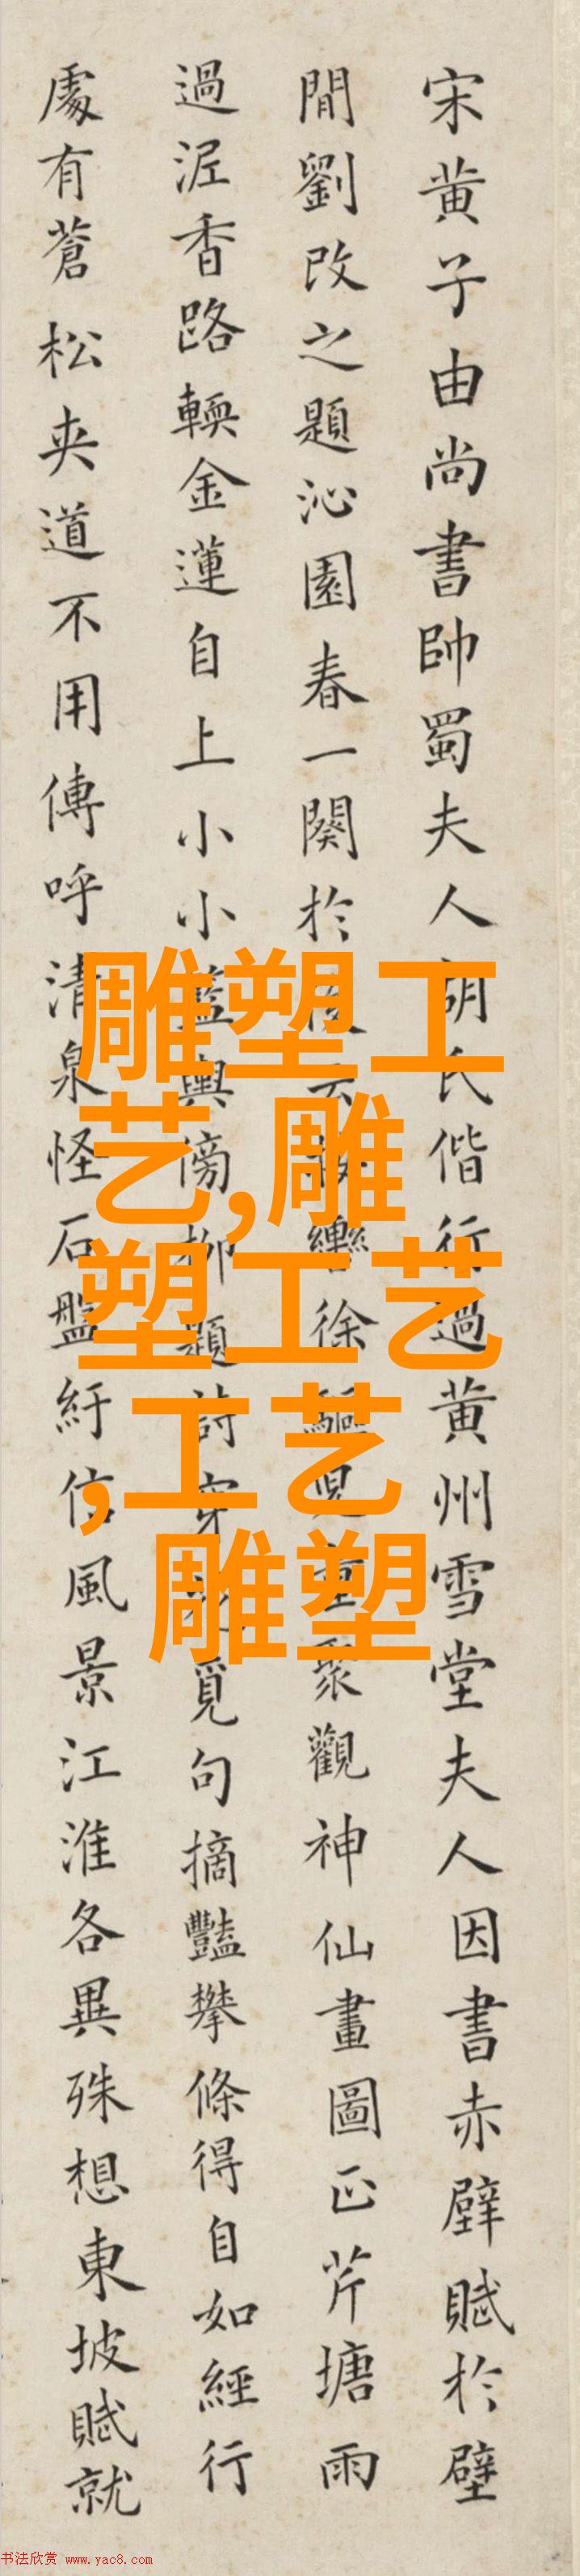 宋黄子由尚書帥蜀夫人胡氏偕行過黄州雪堂夫人因書赤壁賦於壁
閒劉改之題沁園春一闋於後云按轡徐驅兒童聚觀神仙畫圖正芹塘雨
過泥香路輭金蓮自上小小籃輿傍柳題詩穿花覓句摘豔攀條得自如經行
處有蒼松夾道不用傳呼清泉怪石盤紆信風景江淮各異殊想東坡賦就
雕塑工
艺,雕
塑工艺
,工艺
雕塑
书法欣赏 www.yac8.com